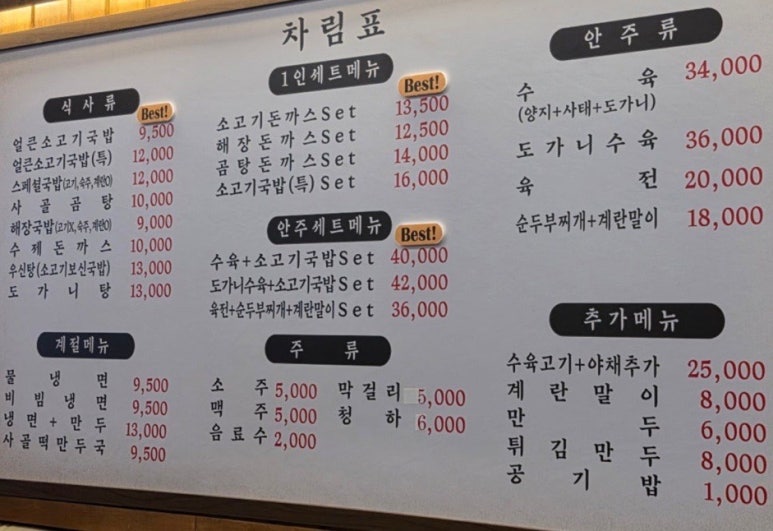 차림표
식사류
Best!
얼큰소고기국밥 9,500
얼큰소고기국밥(특) 12,000
스페셜국밥(고기, 숙주, 계란O) 12,000
사골곰탕 10,000
해장국밥(고기X, 숙주, 계란O) 9,000
수제돈까스 10,000
우신탕(소고기보신국밥) 13,000
도가니탕 13,000
계절메뉴
물냉면 9,500
비빔냉면 9,500
냉면+만두 13,000
사골떡만두국 9,500
1인세트메뉴
Best!
소고기돈까스Set 13,500
해장돈까스Set 12,500
곰탕돈까스Set 14,000
소고기국밥(특)Set 16,000
안주세트메뉴
Best!
수육+소고기국밥Set 40,000
도가니수육+소고기국밥Set 42,000
육전+순두부찌개+계란말이Set 36,000
주류
소주 5,000 막걸리 5,000
맥주 5,000 청하 6,000
음료수 2,000
안주류
수육 34,000
(양지+사태+도가니)
도가니수육 36,000
육전 20,000
순두부찌개+계란말이 18,000
추가메뉴
수육고기+야채추가 25,000
계란말이 8,000
만두 6,000
튀김만두 8,000
공기밥 1,000